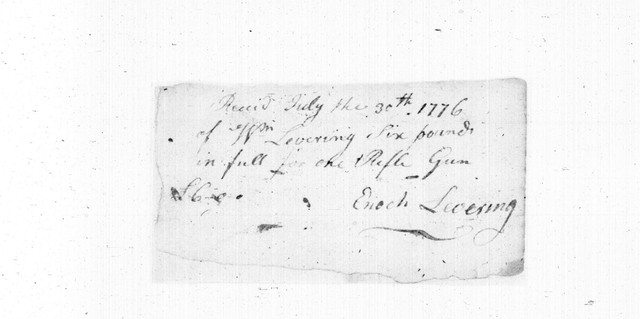 Receid July the 30th 1776
of Wm Levering Six pounds
in full for one Rifle Gun
£6
Enoch Levering